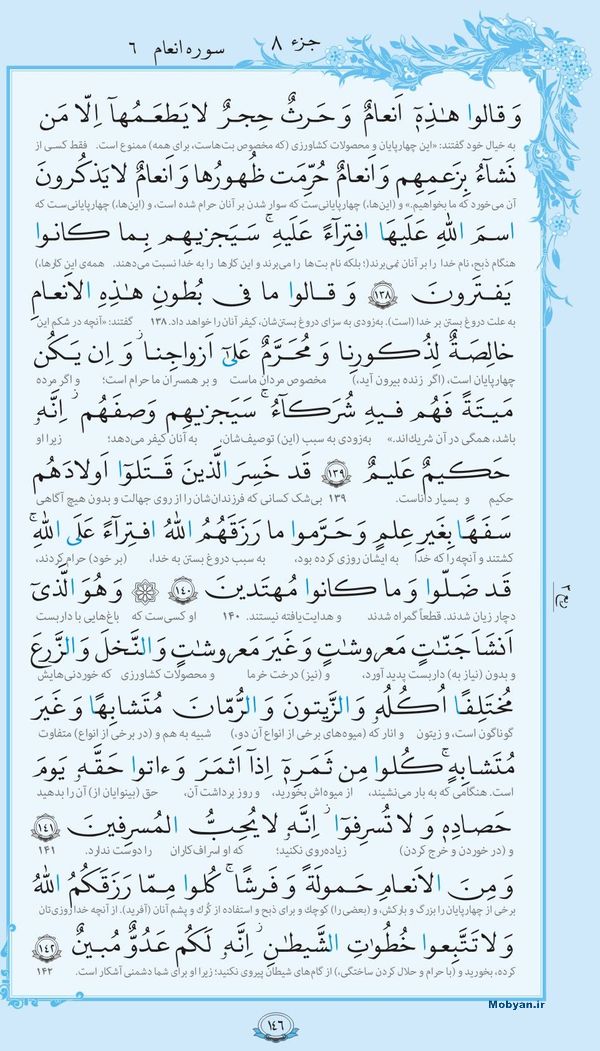 جزء ۸
سوره انعام ۶
وَ قالوا هٰذِهٖ اَنعامٌ وَ حَرثٌ حِجرٌ لا یَطعَمُهآ اِلّا مَن
به خیال خود گفتند: «این چهارپایان و محصولات کشاورزی (که مخصوص بت‌هاست، برای همه) ممنوع است. فقط کسی از
نَشآءُ بِزَعمِهِم وَ اَنعامٌ حُرِّمَت ظُهورُها وَ اَنعامٌ لا یَذکُرونَ
آن می‌خورد که ما بخواهیم.» و (این‌ها،) چهارپایانی‌ست که سوار شدن بر آنان حرام شده است، و (این‌ها،) چهارپایانی‌ست که
اسمَ اللّٰهِ عَلَیهَا افتِرآءً عَلَیهِ ۚ سَیَجزیهِم بِما کانوا
هنگام ذبح، نام خدا را بر آنان نمی‌برند(؛ بلکه نام بت‌ها را می‌برند و این کارها را به خدا نسبت می‌دهند. همه‌ی این کارها،)
یَفتَرونَ ﴿۱۳۸﴾ وَ قالوا ما فی بُطونِ هٰذِهِ الاَنعامِ
به علت دروغ بستن بر خدا (است). به‌زودی به سزای دروغ بستن‌شان، کیفر آنان را خواهد داد. ۱۳۸ گفتند: «آنچه در شکم این
خالِصَةٌ لِذُکورِنا وَ مُحَرَّمٌ عَلیٰٓ اَزواجِنا ۖ وَ اِن یَکُن
چهارپایان است، (اگر زنده بیرون آید،) مخصوص مردان ماست و بر همسران ما حرام است؛ و اگر مرده
مَیتَةً فَهُم فیهِ شُرَکآءُ ۚ سَیَجزیهِم وَصفَهُم ۚ اِنَّهٗ
باشد، همگی در آن شریک‌اند.» به‌زودی به سبب (این) توصیف‌شان، به آنان کیفر می‌دهد؛ زیرا او
حَکیمٌ عَلیمٌ ﴿۱۳۹﴾ قَد خَسِرَ الَّذینَ قَتَلوٓا اَولادَهُم
حکیم و بسیار داناست. ۱۳۹ بی‌شک کسانی که فرزندان‌شان را از روی جهالت و بدون هیچ آگاهی
سَفَهًا بِغَیرِ عِلمٍ وَ حَرَّموا ما رَزَقَهُمُ اللّٰهُ افتِرآءً عَلَی اللّٰهِ ۚ
کشتند و آنچه را که خدا به ایشان روزی کرده بود، به سبب دروغ بستن به خدا، (بر خود) حرام کردند،
قَد ضَلّوا وَ ما کانوا مُهتَدینَ ﴿۱۴۰﴾ وَ هُوَ الَّذیٓ
دچار زیان شدند. قطعاً گمراه شدند و هدایت‌یافته نیستند. ۱۴۰ او کسی‌ست که باغ‌هایی با داربست
اَنشَاَ جَنّٰتٍ مَعروشٰتٍ وَ غَیرَ مَعروشٰتٍ وَ النَّخلَ وَ الزَّرعَ
و بدون (نیاز به) داربست پدید آورد، و (نیز) درخت خرما و محصولات کشاورزی که خوردنی‌هایش
مُختَلِفًا اُکُلُهٗ وَ الزَّیتونَ وَ الرُّمّانَ مُتَشابِهًا وَ غَیرَ
گوناگون است، و زیتون و انار که (میوه‌های برخی از انواع آن دو،) شبیه به هم و (در برخی از انواع) متفاوت
مُتَشابِهٍ ۚ کُلوا مِن ثَمَرِهٖٓ اِذآ اَثمَرَ وَ ءاتوا حَقَّهٗ یَومَ
است. هنگامی که به بار می‌نشیند، از میوه‌اش بخورید، و روز برداشت آن، حق (بینوایان از) آن را بدهید
حَصادِهٖ ۖ وَ لا تُسرِفوٓا ۚ اِنَّهٗ لا یُحِبُّ المُسرِفینَ ﴿۱۴۱﴾
و (در خوردن و خرج کردن) زیاده‌روی نکنید؛ که او اسراف‌کاران را دوست ندارد. ۱۴۱
وَ مِنَ الاَنعامِ حَمولَةً وَ فَرشًا ۚ کُلوا مِمّا رَزَقَکُمُ اللّٰهُ
برخی از چهارپایان را بزرگ و بارکش، و (بعضی را) کوچک و برای ذبح و استفاده از کُرک و پشم آنان (آفرید). از آنچه خدا روزی‌تان
وَ لا تَتَّبِعوا خُطُوٰتِ الشَّیطٰنِ ۚ اِنَّهٗ لَکُم عَدُوٌّ مُبینٌ ﴿۱۴۲﴾
کرده، بخورید و (با حرام و حلال کردن ساختگی،) از گام‌های شیطان پیروی نکنید؛ زیرا او برای شما دشمنی آشکار است. ۱۴۲
Mobyan.ir
۱۴۶